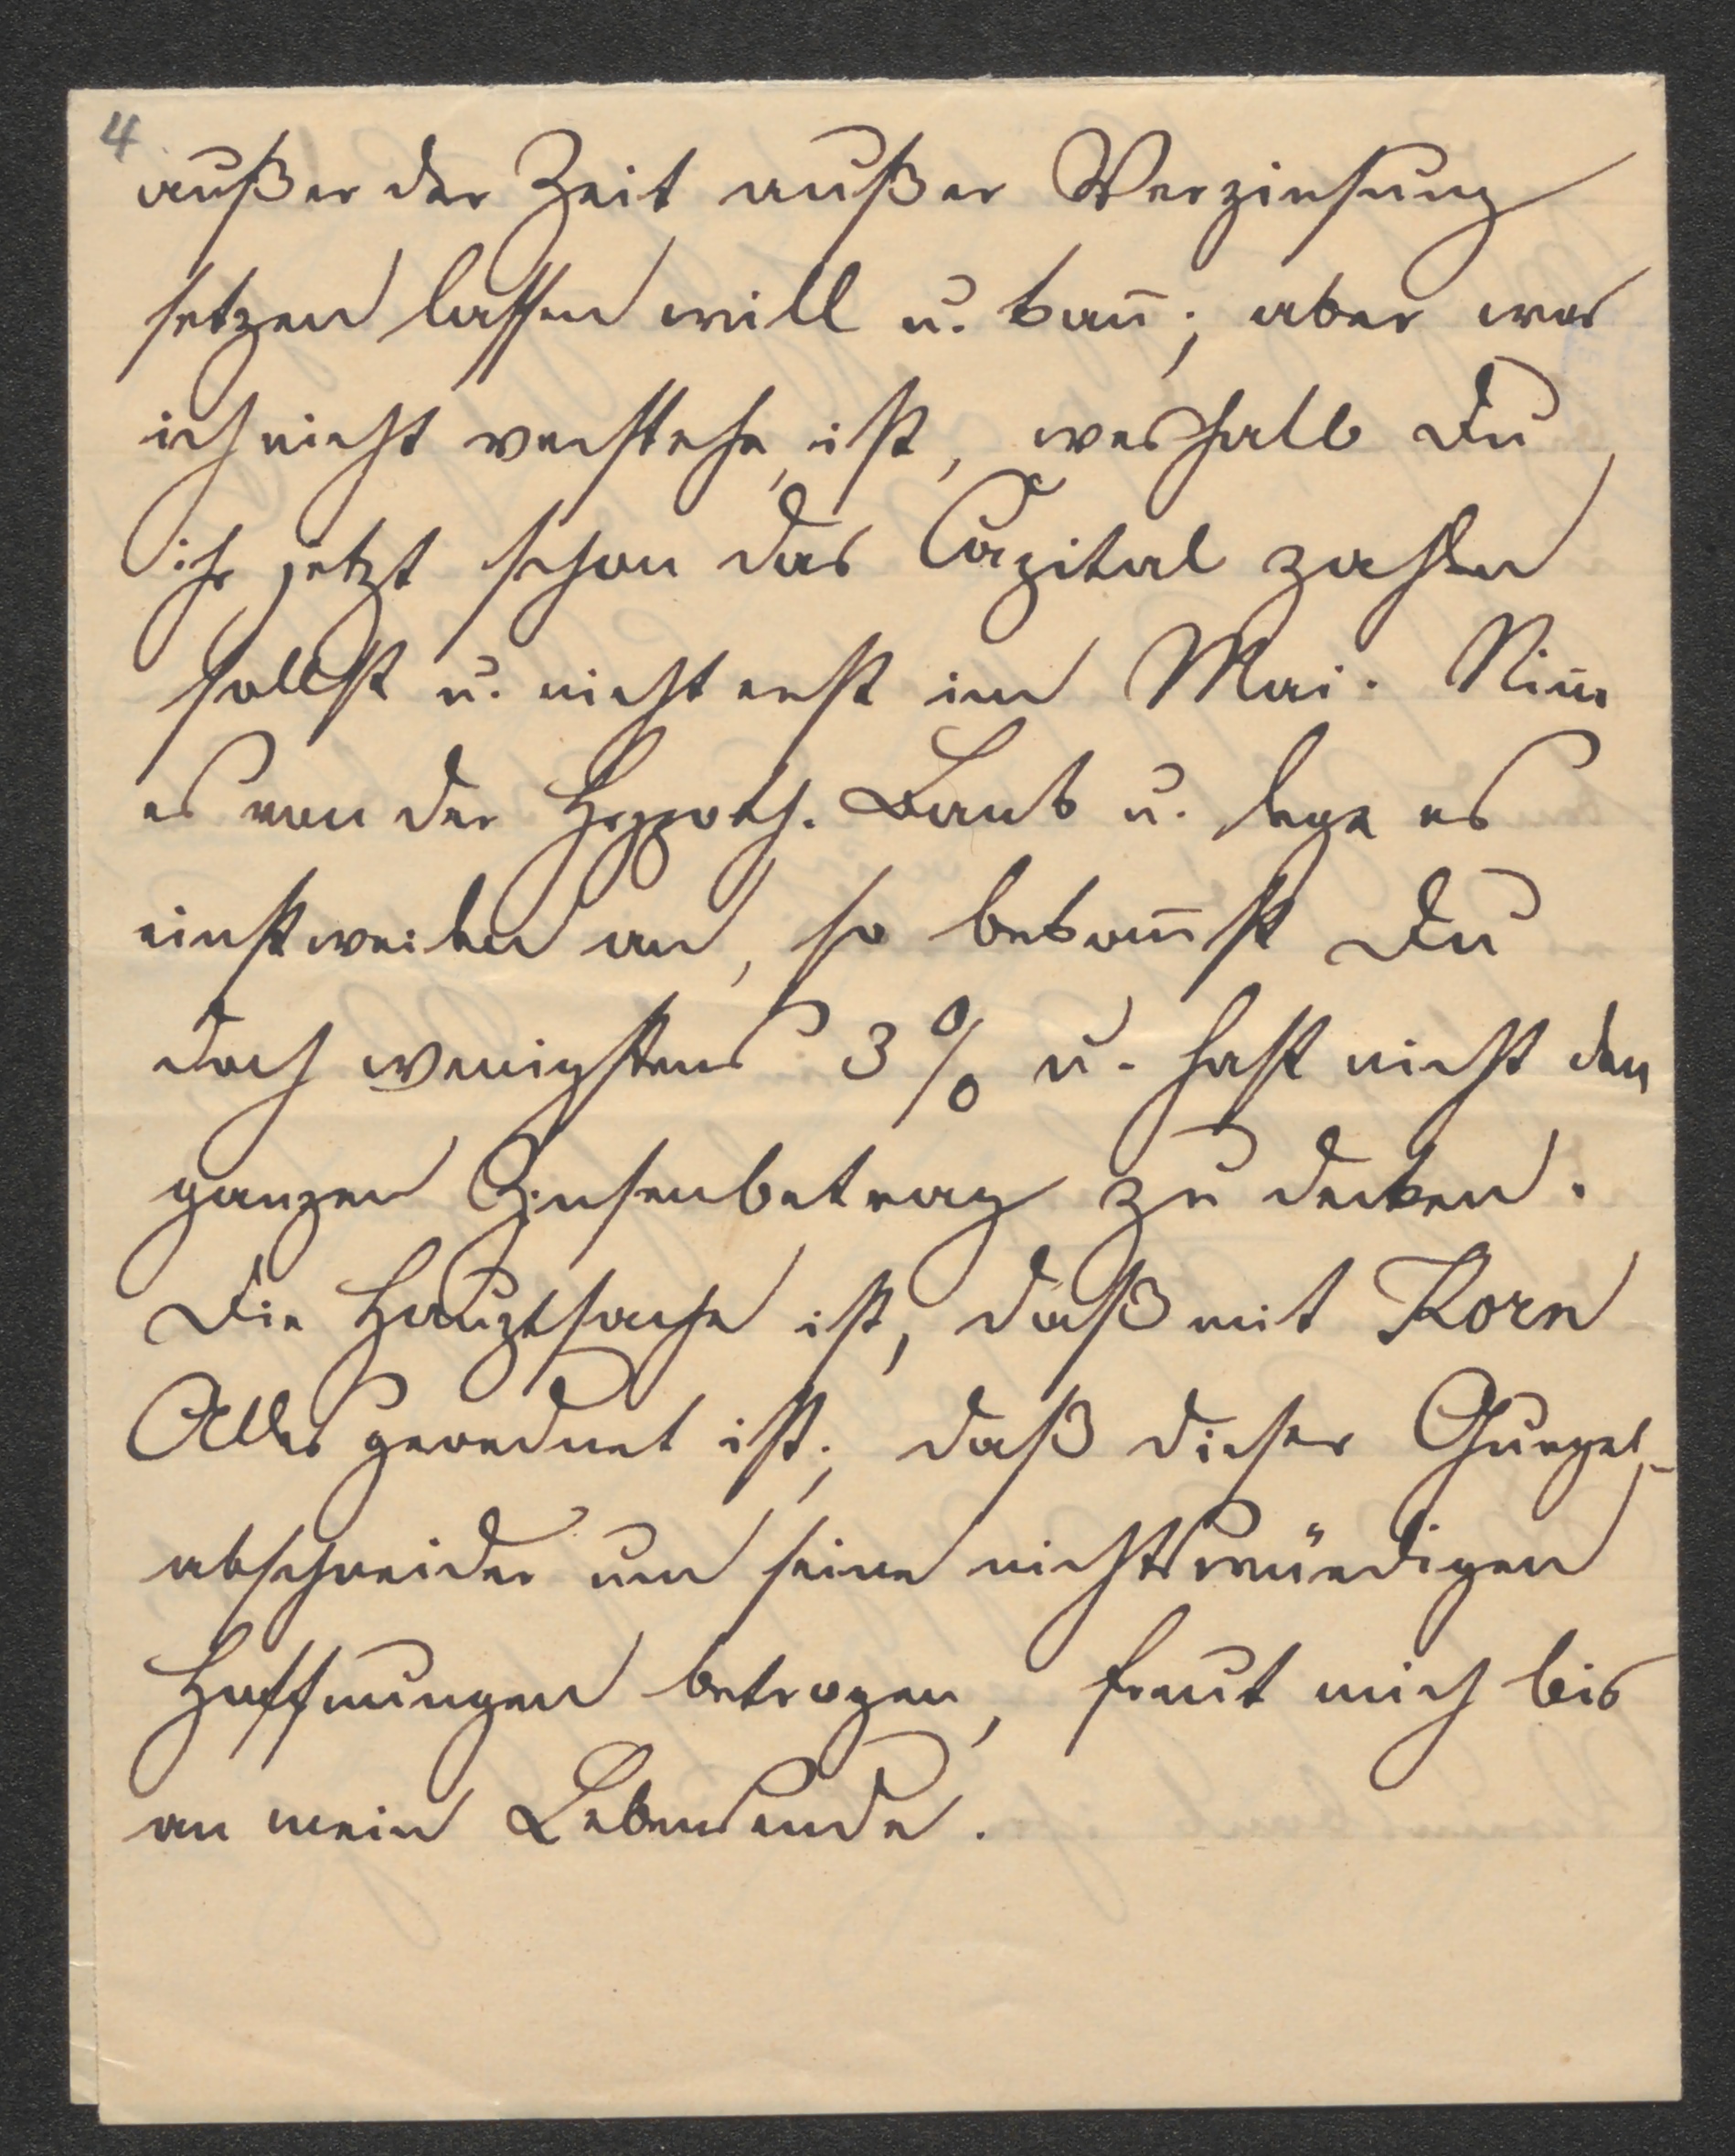 4
außer der Zeit außer Verzinsung
setzen lassen will u. kan̄; aber was
ich nicht verstehe, ist, weshalb Du
ihr jetzt schon das Capital zahlen
sollst u. nicht erst im Mai. Nim̄
es von der Hypoth. Bank u. lege es
einstweilen an, so bekom̄st Du
doch wenigstens 3% u. hast nicht den
ganzen Zinsenbetrag zu decken.
Die Hauptsache ist, daß mit Korn
Alles geordnet ist; daß dieser Gurgel-
abschneider um seine nichtswürdigen
Hoffnungen betrogen, freut mich bis
an mein Lebensende.